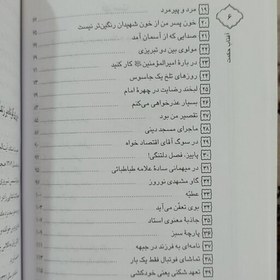 ۶
آفتاب حکمت
۱۹ مرد و پیرمرد
۲۰ خون پسر من از خون شهیدان رنگین‌تر نیست
۲۱ صدایی که از آسمان آمد
۲۲ مولوی بین دو تبریزی
۲۳ در بارهٔ امیرالمؤمنین کار کنید
۲۴ روزهای تلخ یک جاسوس
۲۵ لبخند رضایت در چهرهٔ امام
۲۶ بسیار عذرخواهی می‌کنم
۲۷ تقصیر من بود
۲۸ ماجرای مسجد دینی
۲۹ در سوگ آقای اقتصاد خواه
۳۰ پاییز، فصل دلتنگی!
۳۱ در میهمانی سادهٔ علامه طباطبائی
۳۲ گاو مشهدی نوروز
۳۳ عطیّه
۳۴ بوی تعفّن می‌آید
۳۵ جاذبهٔ معنوی استاد
۳۶ پارچهٔ سبز
۳۷ نامه‌ای به فرزند در جبهه
۳۸ تماشای فوتبال فقط یک بار
۳۹ تعهد شکنی یعنی خودکشی